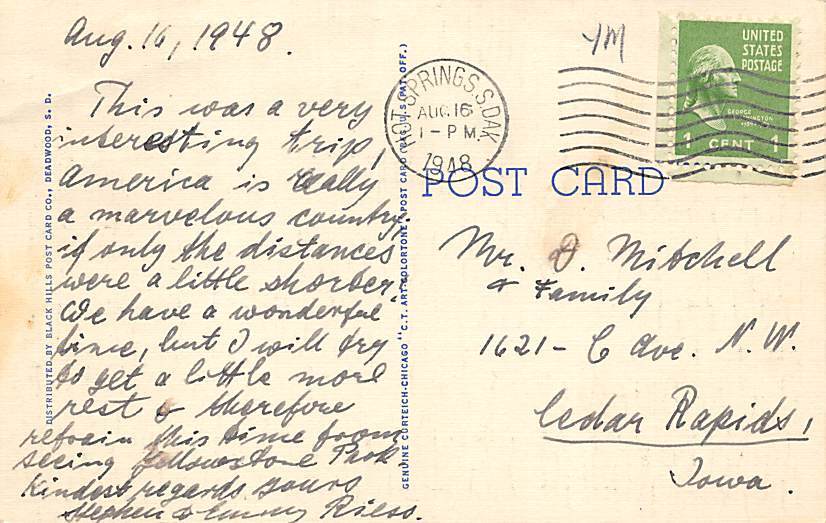 Aug. 16, 1948.
This was a very
interesting trip,
America is really
a marvelous country.
if only the distances
were a little shorter.
We have a wonderful
time, but I will try
to get a little more
rest & therefore
refrain this time from
seeing Yellowstone Park
Kindest regards yours
Stephen & Riess.
DISTRIBUTED BY BLACK HILLS POST CARD CO., DEADWOOD, S. D.
GENUINE CURTEICH-CHICAGO "C.T. ART-COLORTONE" POST CARD (REG. U.S. PAT. OFF.)
HOT SPRINGS, S. DAK.
AUG 16
1-PM.
1948
YM
UNITED
STATES
POSTAGE
GEORGE
WASHINGTON
1 CENT 1
POST CARD
Mr. D. Mitchell
& Family
1621- C Ave. N.W.
Cedar Rapids,
Iowa.